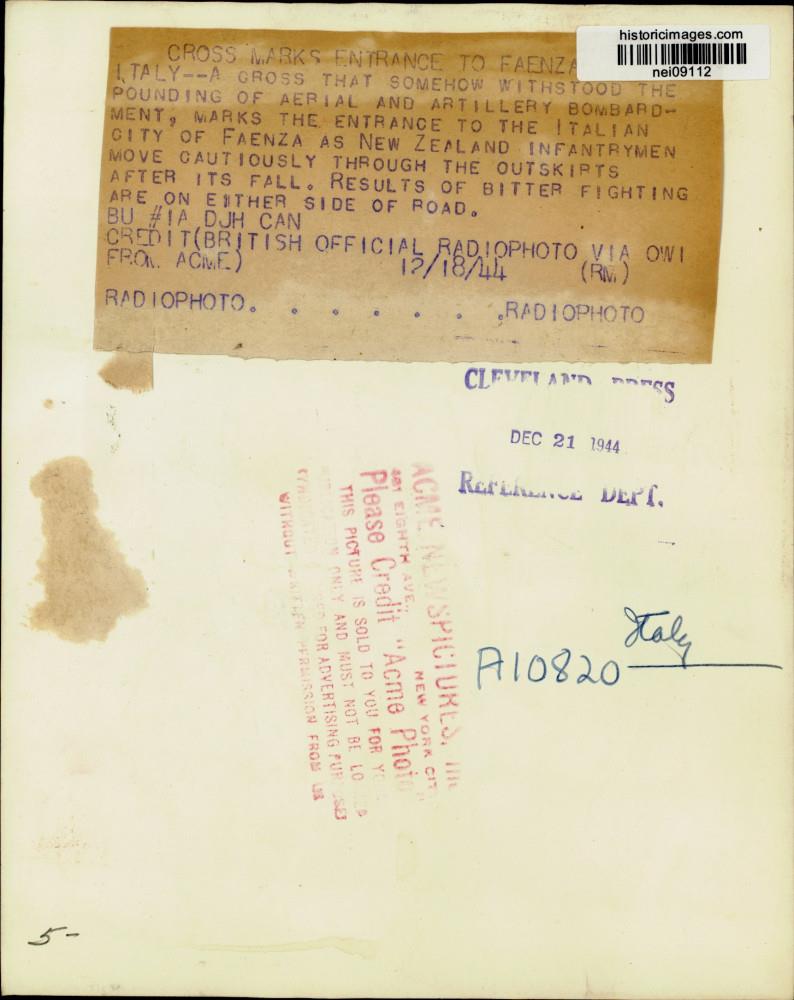 historicimages.com
nei09112
CROSS MARKS ENTRANCE TO FAENZA
ITALY--A CROSS THAT SOMEHOW WITHSTOOD THE
POUNDING OF AERIAL AND ARTILLERY BOMBARD-
MENT, MARKS THE ENTRANCE TO THE ITALIAN
CITY OF FAENZA AS NEW ZEALAND INFANTRYMEN
MOVE CAUTIOUSLY THROUGH THE OUTSKIRTS
AFTER ITS FALL. RESULTS OF BITTER FIGHTING
ARE ON EITHER SIDE OF ROAD.
BU #1A DJH CAN
CREDIT(BRITISH OFFICIAL RADIOPHOTO VIA OWI
FROM ACME) 12/18/44 (RM)
RADIOPHOTO. . . . . . .RADIOPHOTO
CLEVELAND PRESS
DEC 21 1944
REFERENCE DEPT.
ACME NEWSPICTURES, INC
461 EIGHTH AVE., NEW YORK CITY
Please Credit "Acme Photo
THIS PICTURE IS SOLD TO YOU FOR
ON ONLY AND MUST NOT BE
FOR ADVERTISING PURPOSES
WITHOUT WRITTEN PERMISSION FROM US
Italy
A10820
5-